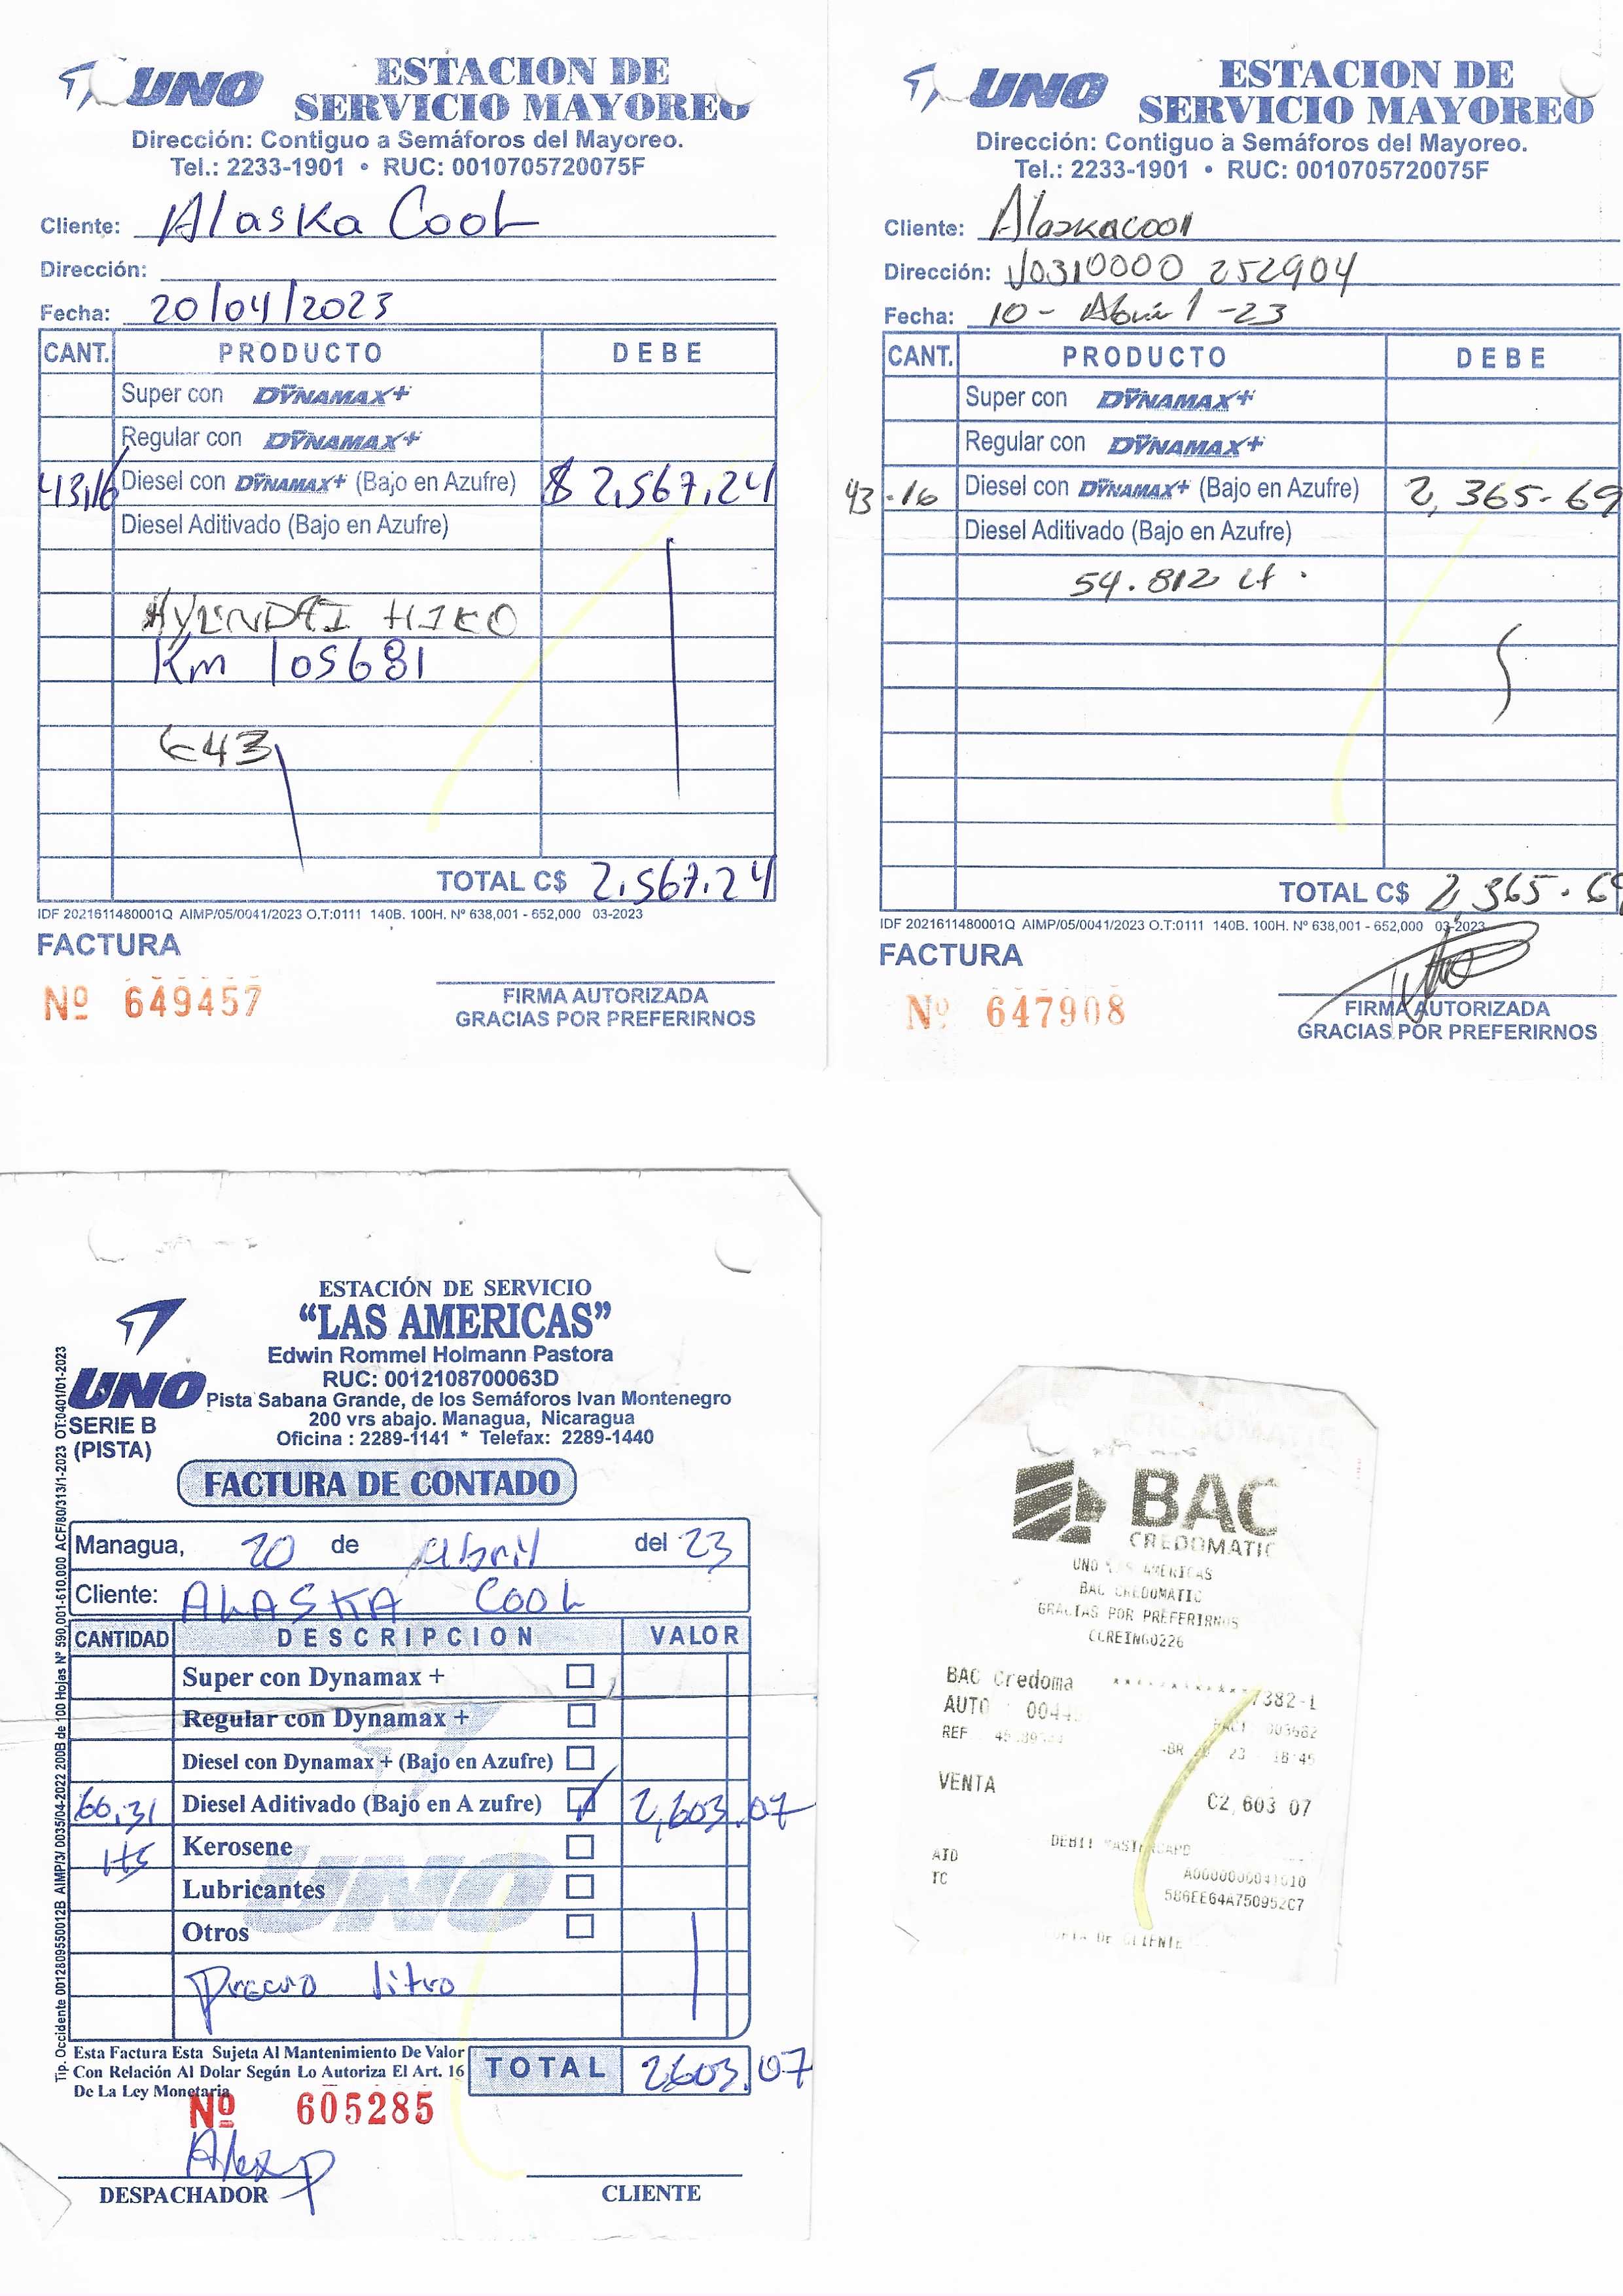 UNO
ESTACION DE
SERVICIO MAYOREO
Dirección: Contiguo a Semáforos del Mayoreo.
Tel.: 2233-1901 • RUC: 0010705720075F
Cliente: Alaska Cool
Dirección:
Fecha: 20/04/2023
CANT. PRODUCTO DEBE
Super con DYNAMAX+
Regular con DYNAMAX+
43,16 Diesel con DYNAMAX+ (Bajo en Azufre) $ 2,567.24
Diesel Aditivado (Bajo en Azufre)
Km 105681
643
TOTAL C$ 2,567.24
IDF 2021611480001Q AIMP/05/0041/2023 O.T:0111 140B. 100H. Nº 638,001 - 652,000 03-2023
FACTURA
Nº 649457
FIRMA AUTORIZADA
GRACIAS POR PREFERIRNOS
UNO
ESTACION DE
SERVICIO MAYOREO
Dirección: Contiguo a Semáforos del Mayoreo.
Tel.: 2233-1901 • RUC: 0010705720075F
Cliente: Alaskacool
Dirección: J0310000 252904
Fecha: 10 - Abril -23
CANT. PRODUCTO DEBE
Super con DYNAMAX+
Regular con DYNAMAX+
43.16 Diesel con DYNAMAX+ (Bajo en Azufre) 2,365.69
Diesel Aditivado (Bajo en Azufre)
54.812 Lt.
TOTAL C$ 2,365.69
IDF 2021611480001Q AIMP/05/0041/2023 O.T:0111 140B. 100H. Nº 638,001 - 652,000 03-2023
FACTURA
Nº 647908
FIRMA AUTORIZADA
GRACIAS POR PREFERIRNOS
ESTACIÓN DE SERVICIO
“LAS AMERICAS”
Edwin Rommel Holmann Pastora
RUC: 0012108700063D
UNO
Pista Sabana Grande, de los Semáforos Ivan Montenegro
200 vrs abajo. Managua, Nicaragua
Oficina : 2289-1141 * Telefax: 2289-1440
SERIE B
(PISTA)
FACTURA DE CONTADO
Managua, 20 de Abril del 23
Cliente: ALASKA COOL
CANTIDAD DESCRIPCION VALOR
Super con Dynamax +
Regular con Dynamax +
Diesel con Dynamax + (Bajo en Azufre)
66,31 Diesel Aditivado (Bajo en A zufre) 2,603.07
Kerosene
Lubricantes
Otros
litro
Esta Factura Esta Sujeta Al Mantenimiento De Valor
Con Relación Al Dolar Según Lo Autoriza El Art. 16
De La Ley Monetaria
TOTAL 2603.07
Nº 605285
DESPACHADOR
CLIENTE
BAC
CREDOMATIC
UNO LAS AMERICAS
BAC CREDOMATIC
GRACIAS POR PREFERIRNOS
BAC Credoma ************7382-1
AUTO
REF
VENTA C2 603 07
AID A0000000041010
TC 586EE64A750952C7